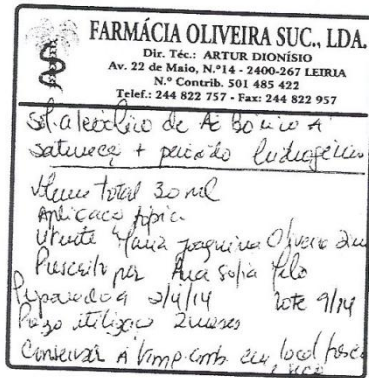 FARMÁCIA OLIVEIRA SUC., LDA.
Dir. Téc.: ARTUR DIONÍSIO
Av. 22 de Maio, N.º 14 - 2400-267 LEIRIA
N.º Contrib. 501 485 422
Telef.: 244 822 757 - Fax: 244 822 957
Sol. alcoólico de Ác Bórico à
+
Volume total 30 ml
Aplicação tópica
Utente Maria Joaquina Oliveira
Prescrito por Ana Sofia
Preparado a 2/4/14 lote 9/14
Prazo utilização 2 meses
Conservar à temp. amb. em local fresco